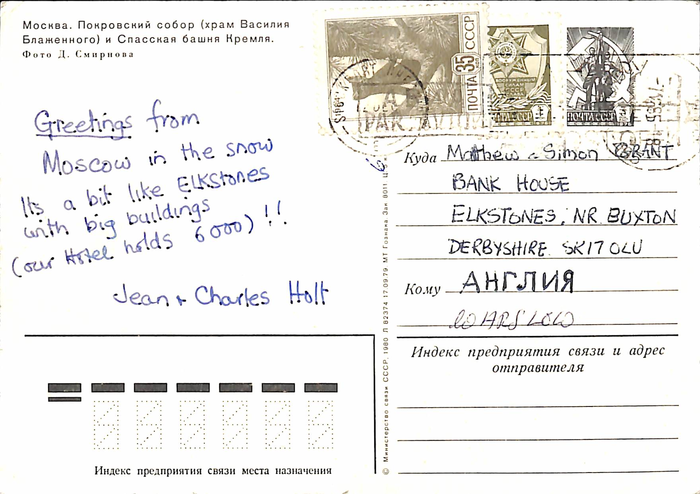 Москва. Покровский собор (храм Василия
Блаженного) и Спасская башня Кремля.
Фото Д. Смирнова
Greetings from
Moscow in the snow
Its a bit like ELKSTONES
with big buildings
(our Hotel holds 6000) !!
Jean + Charles Holt
ПОЧТА СССР 35
ПОЧТА СССР
ПОЧТА СССР
PAR AVION
Куда Matthew & Simon BRANT
BANK HOUSE
ELKSTONES, NR BUXTON
DERBYSHIRE SK17 OLU
Кому АНГЛИЯ
Индекс предприятия связи и адрес
отправителя
Индекс предприятия связи места назначения
© Министерство связи СССР. 1980 Л 82374 17.09.79 МТ Гознака Зак 9011